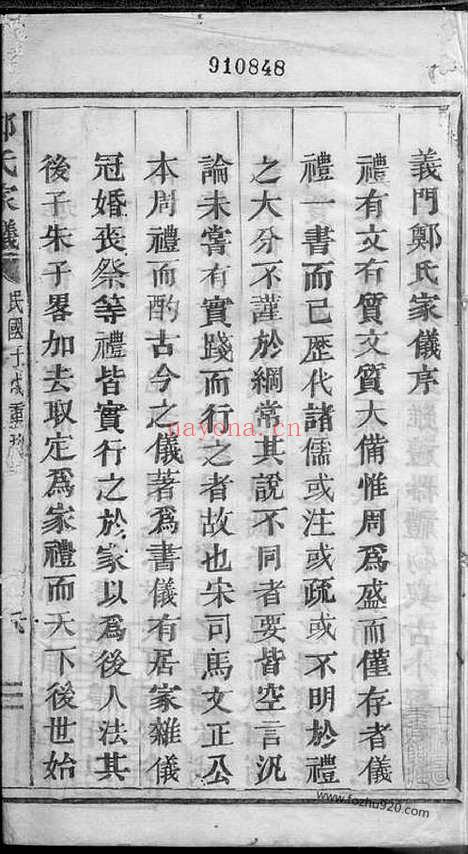 910848
義門鄭氏家儀序
禮有文有質文質大備惟周為盛而僅存者儀
禮一書而已歷代諸儒或注或疏或不明於禮
之大分不謹於綱常其說不同者要皆空言汎
論未嘗有實踐而行之者故也宋司馬文正公
本周禮而酌古今之儀著為書儀有居家雜儀
冠婚喪祭等禮皆實行之於家以為後人法其
後子朱子畧加去取定為家禮而天下後世始
鄭氏家儀
民國
重
nayona.cn
www.fozhu920.com